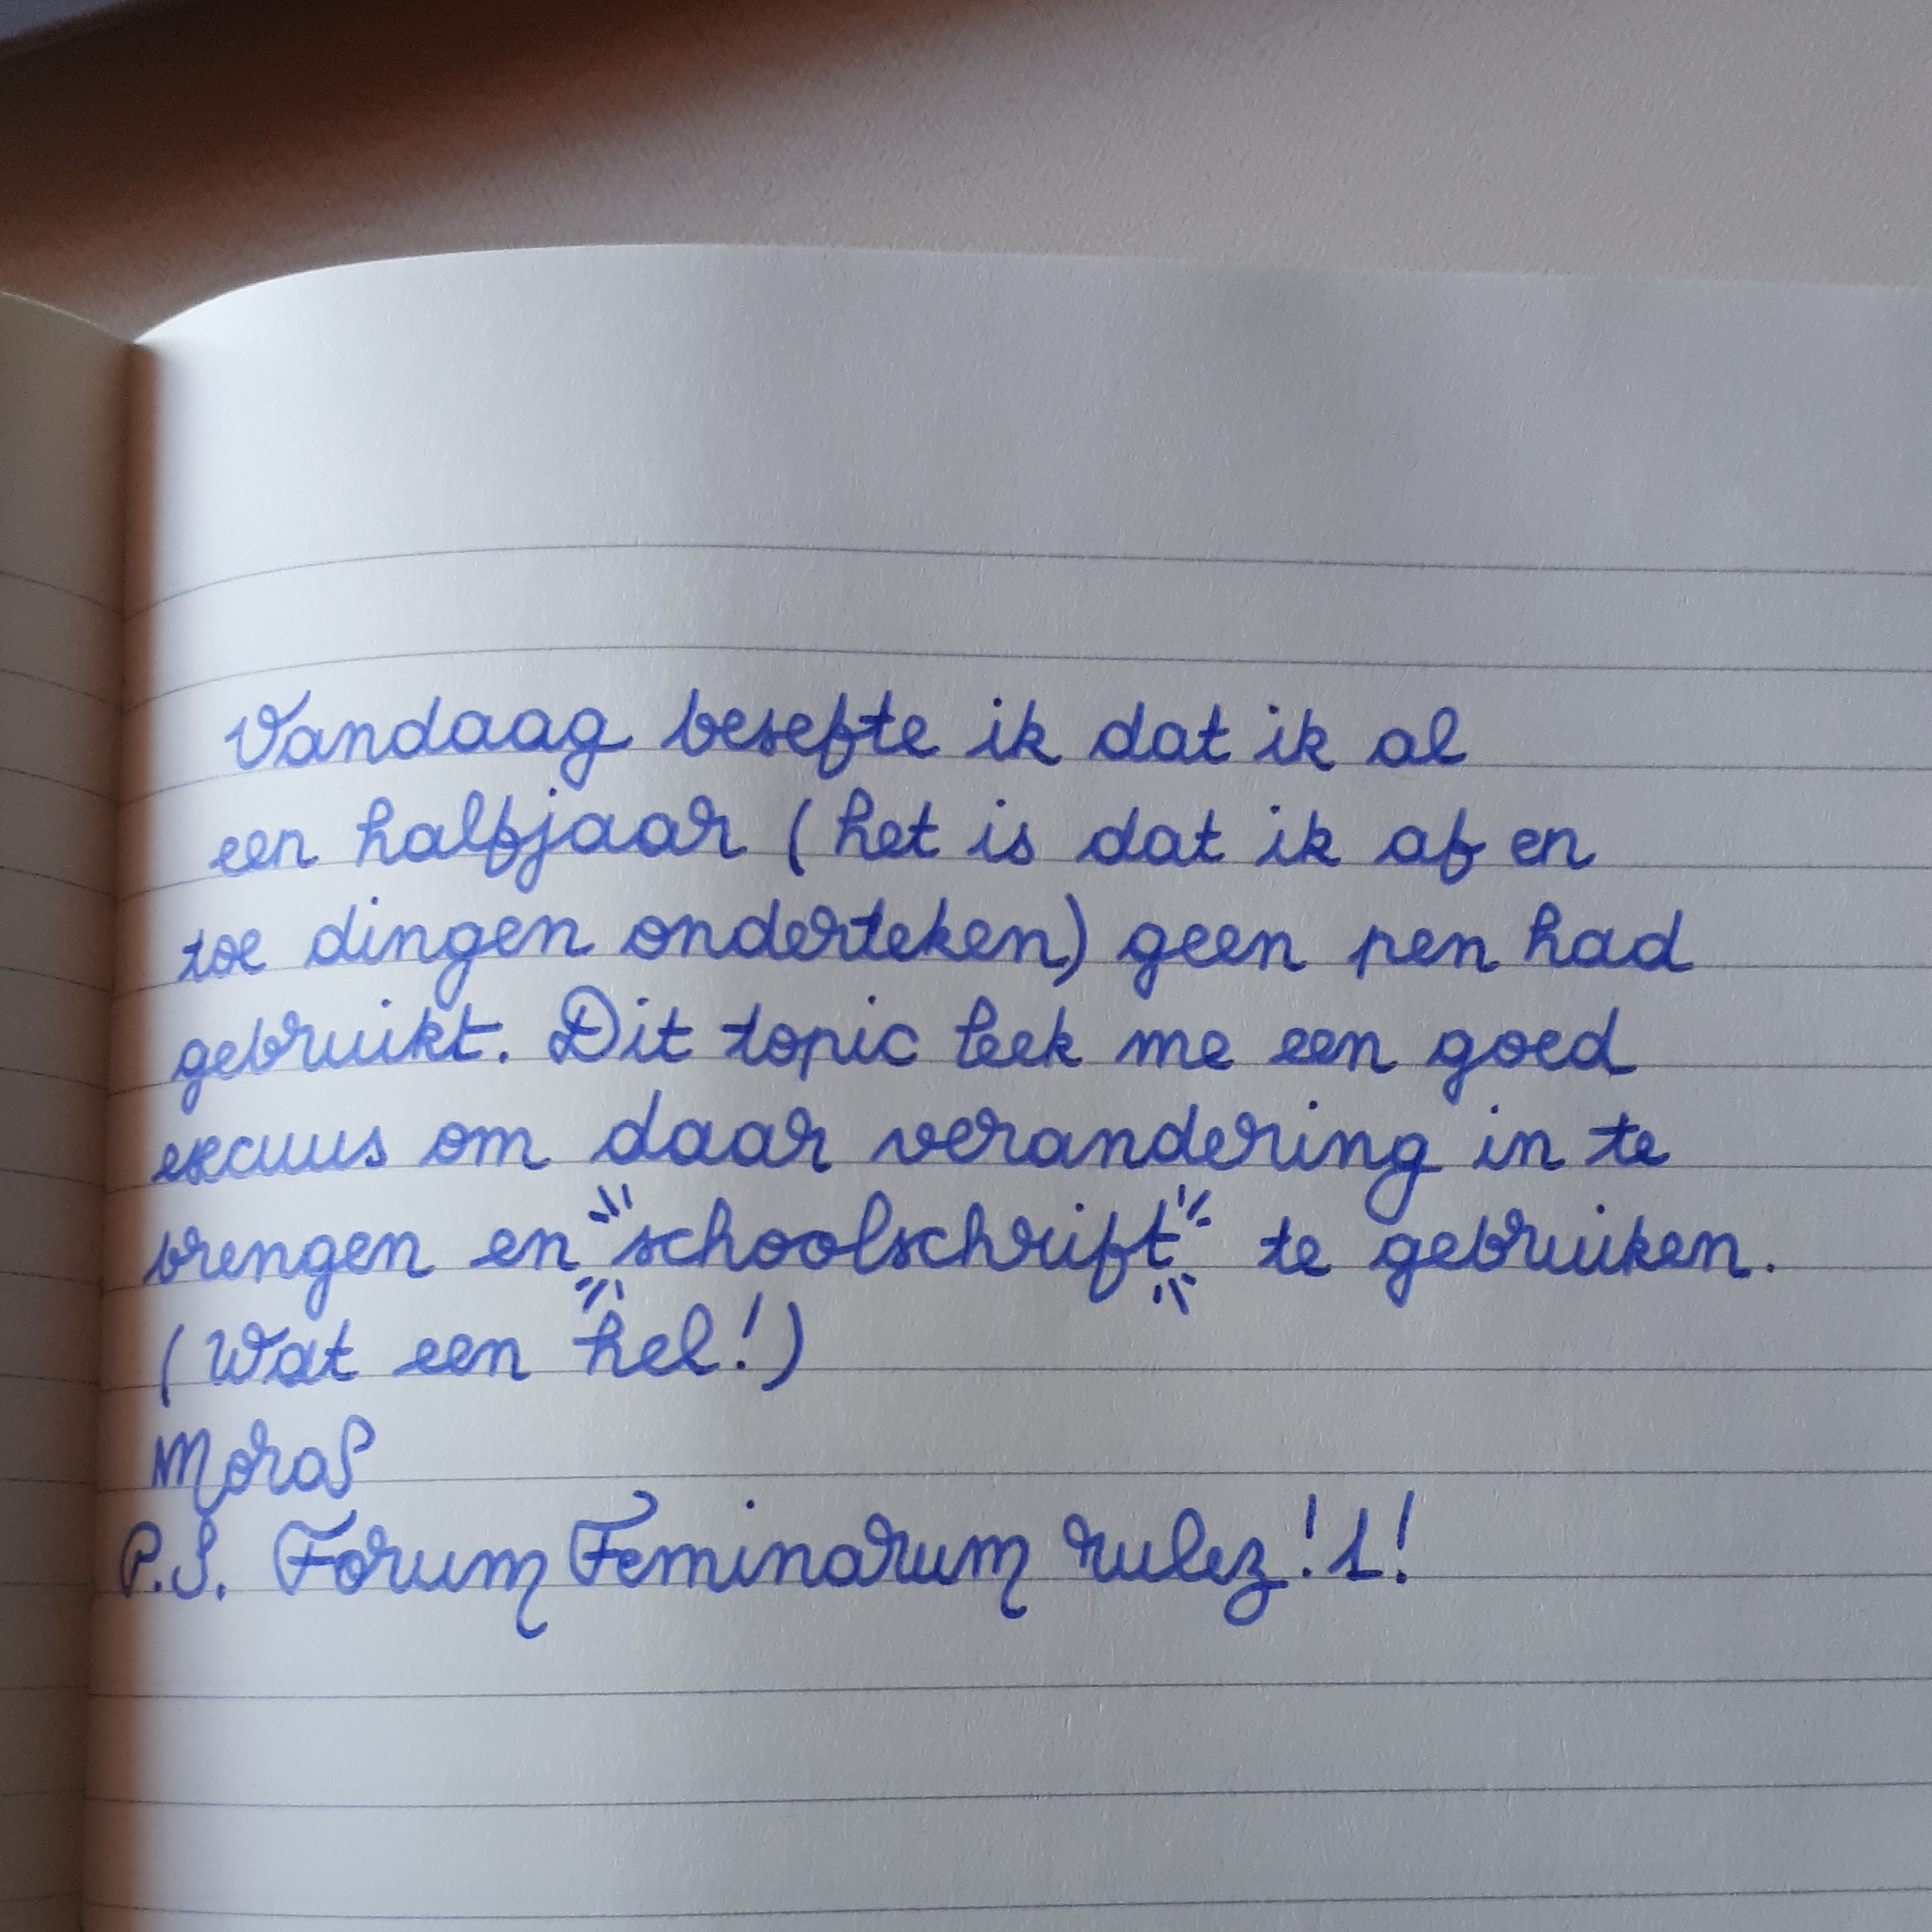 Vandaag besefte ik dat ik al
een halfjaar (het is dat ik af en
toe dingen onderteken) geen pen had
gebruikt. Dit topic leek me een goed
excuus om daar verandering in te
brengen en "schoolschrift" te gebruiken.
(Wat een hel!)
MoraS
P.S. Forum Feminarum rulez!1!